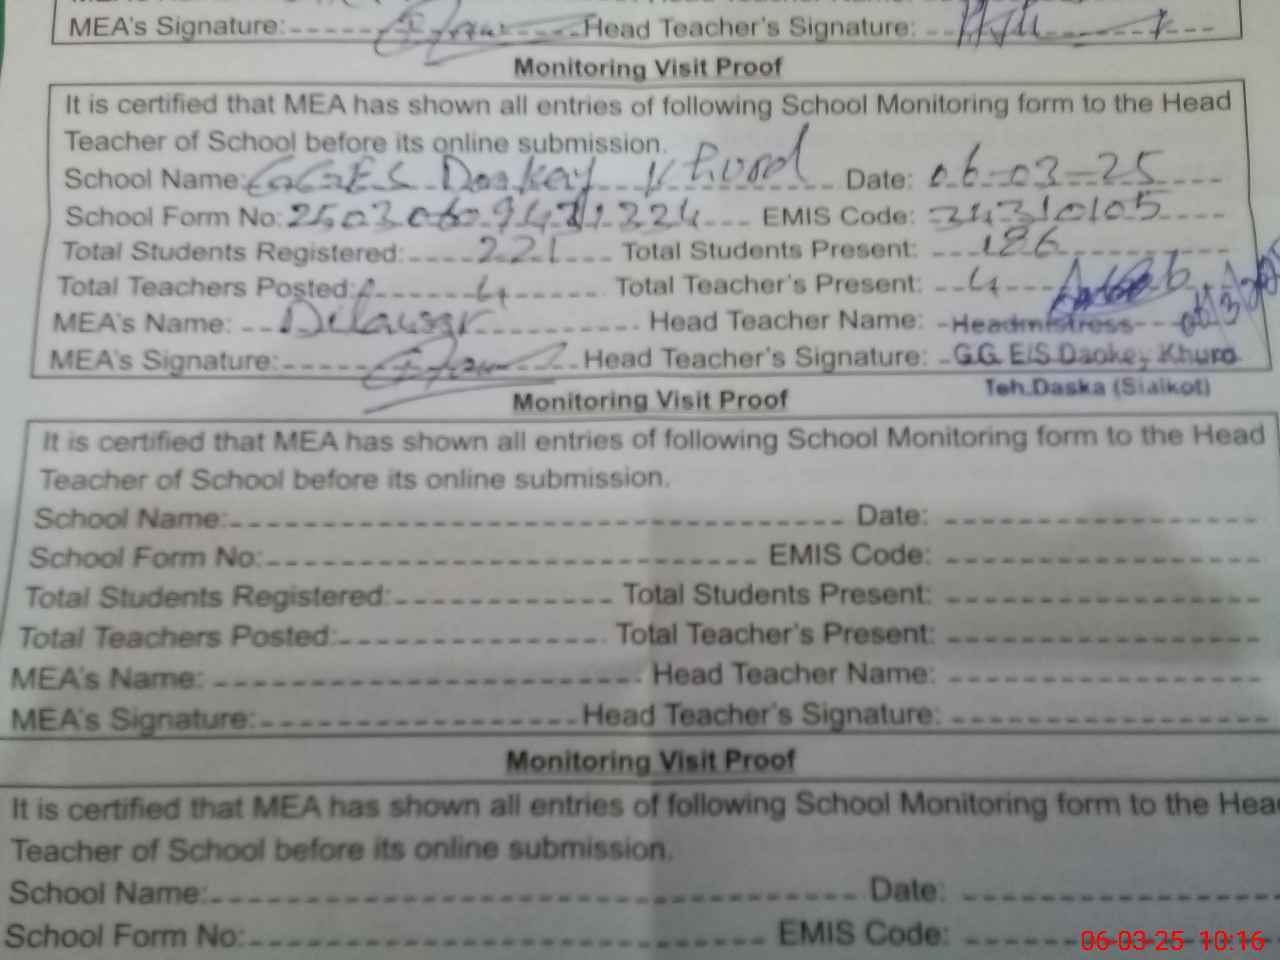 MEA's Signature: Head Teacher's Signature:
Monitoring Visit Proof
It is certified that MEA has shown all entries of following School Monitoring form to the Head
Teacher of School before its online submission.
School Name: GGES Daokay Khurd Date: 06-03-25
School Form No: EMIS Code: 34310105
Total Students Registered: 221 Total Students Present: 186
Total Teachers Posted: 4 Total Teacher's Present: 4
MEA's Name: Dilawar Head Teacher Name: Headmistress
MEA's Signature: Head Teacher's Signature: G.G. E/S Daokey Khurd
Teh.Daska (Sialkot)
Monitoring Visit Proof
It is certified that MEA has shown all entries of following School Monitoring form to the Head
Teacher of School before its online submission.
School Name: Date:
School Form No: EMIS Code:
Total Students Registered: Total Students Present:
Total Teachers Posted: Total Teacher's Present:
MEA's Name: Head Teacher Name:
MEA's Signature: Head Teacher's Signature:
Monitoring Visit Proof
It is certified that MEA has shown all entries of following School Monitoring form to the Hea
Teacher of School before its online submission.
School Name: Date:
School Form No: EMIS Code:
06-03-25 10:16